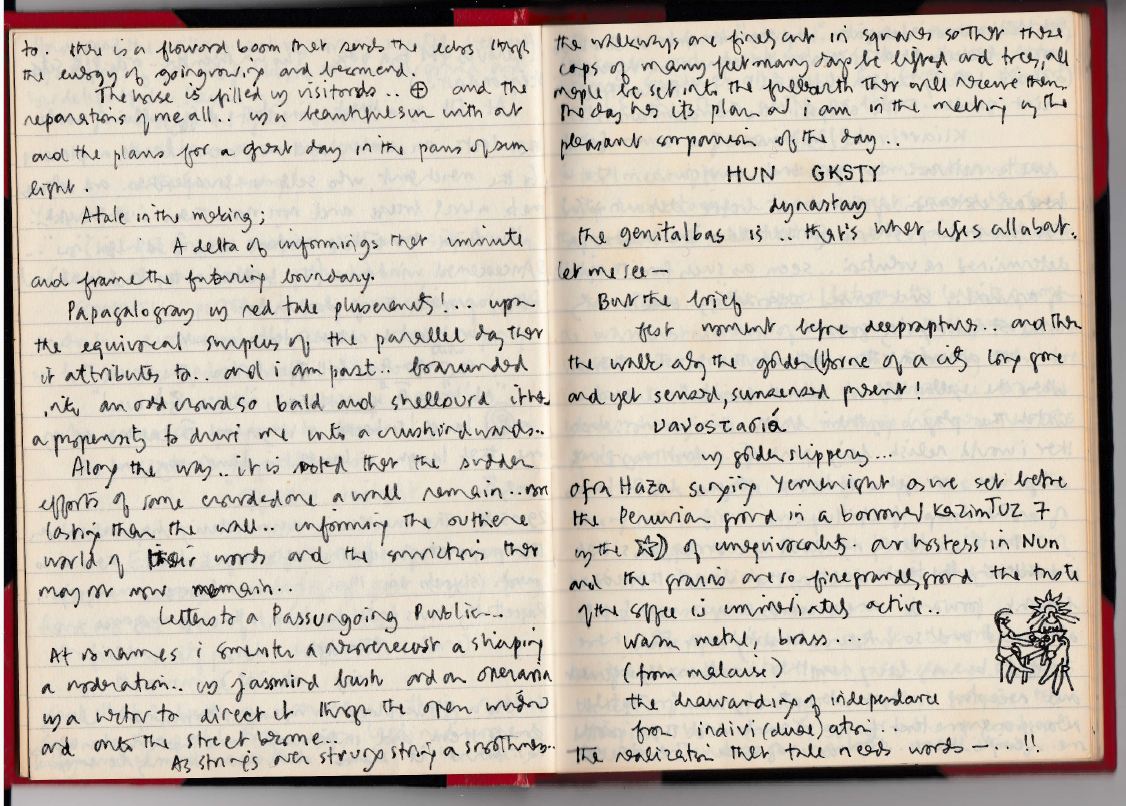 to. there is a floword boom that sends the echos through
the energy of goingrowing and becomend.
The house is filled in visitords.. ⊕ and the
reparations of me all.. in a beautiful sun with out
and the plans for a great day in the pans of sun
light.
A tale in the making;
A delta of informings that immute
and frame the futuring boundary.
Papagalogram in red tale pluserents!.. upon
the equivocal surplus of the parallel day that
it attributes to.. and i am past..
an odd crowd so bald and
a propensity to draw me into a crushind wards..
Along the way.. it is noted that the sudden
efforts of some crowdedone a wall remain..
lasting than the wall.. informing the outhere
world of their words and the that
may not now remain..
Letters to a Passungoing Public...
At no names i a a shaping
a moderation.. in jasmind bush and an
in a to direct it through the open window
and onto the street
As strings over strings string a smoothness..
the walkways are finely cut in squares so that these
cops of many feet many days be lifted and trees, all
maple be set into the fullearth that will receive them.
The day has its plan and i am in the meeting in the
pleasant companion of the day..
HUN GKSTY
dynastay
the genitalbas is .. that's what lifes allabat.
let me see —
But the brief
fest moment before deepraptures.. and then
the walk along the golden (horne of a city long gone
and yet sensed, sunsensed present!
υανοστασιά
in golden slippers...
Ofra Haza singing Yemenight as we set before
the Peruvian grond in a borrowed KazimTuz 7
in the ☆) of unequivocality. an hostess in Nun
and the grains are so finegrandly grond the taste
of the coffee is imminediately active..
warm metal, brass..
(from malaise)
the drawarding of independance
from indivi(duae)ation..
the realization that tale needs words —...!!